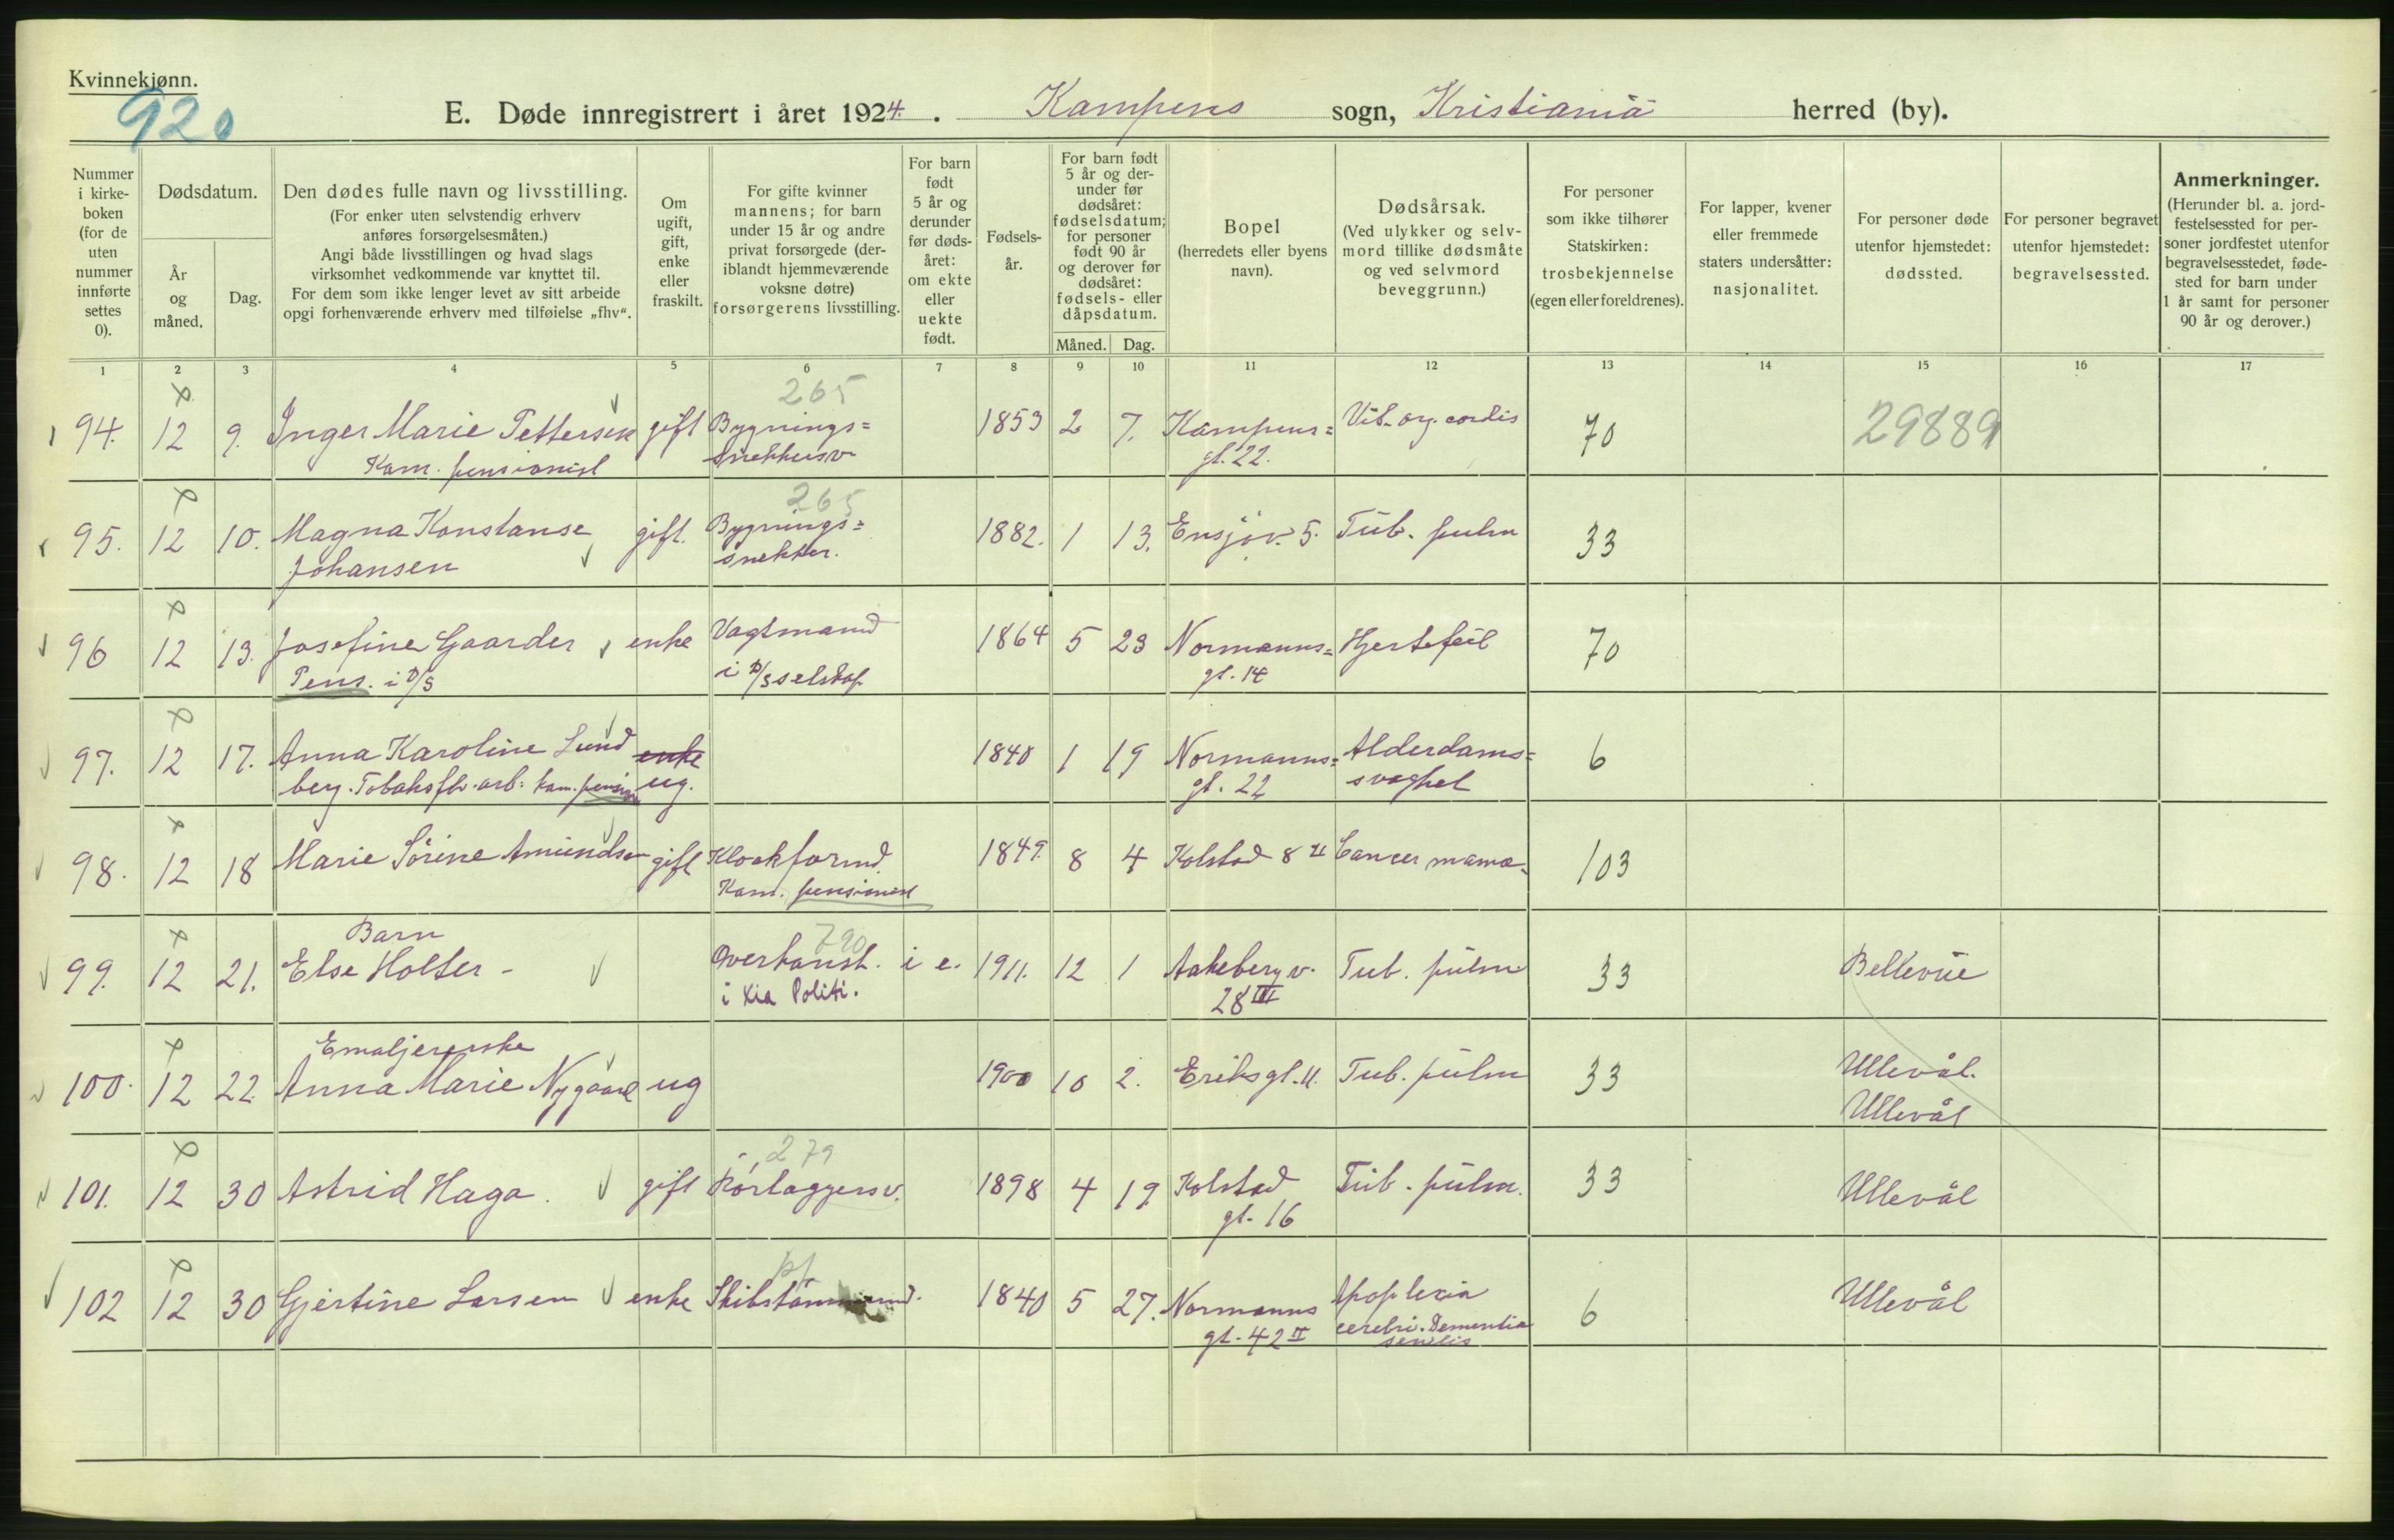 Kvinnekjønn.
920
E. Døde innregistrert i året 1924. Kampens sogn, Kristiania herred (by).
Nummer i kirkeboken (for de uten nummer innførte settes 0).
Dødsdatum.
År og måned.
Dag.
Den dødes fulle navn og livsstilling.
(For enker uten selvstendig erhverv anføres forsørgelsesmåten.)
Angi både livsstillingen og hvad slags virksomhet vedkommende var knyttet til.
For dem som ikke lenger levet av sitt arbeide opgi forhenværende erhverv med tilføielse „fhv“.
Om ugift, gift, enke eller fraskilt.
For gifte kvinner mannens; for barn under 15 år og andre privat forsørgede (deriblandt hjemmeværende voksne døtre) forsørgerens livsstilling.
For barn født 5 år og derunder før dødsåret: om ekte eller uekte født.
Fødselsår.
For barn født 5 år og derunder før dødsåret: fødselsdatum; for personer født 90 år og derover før dødsåret: fødsels- eller dåpsdatum.
Måned.
Dag.
Bopel (herredets eller byens navn).
Dødsårsak.
(Ved ulykker og selvmord tillike dødsmåte og ved selvmord beveggrunn.)
For personer som ikke tilhører Statskirken: trosbekjennelse (egen eller foreldrenes).
For lapper, kvener eller fremmede staters undersåtter: nasjonalitet.
For personer døde utenfor hjemstedet: dødssted.
For personer begravet utenfor hjemstedet: begravelsessted.
Anmerkninger.
(Herunder bl. a. jordfestelsessted for personer jordfestet utenfor begravelsesstedet, fødested for barn under 1 år samt for personer 90 år og derover.)
1 2 3 4 5 6 7 8 9 10 11 12 13 14 15 16 17
265
94. 12 9. Inger Marie Pettersen gift Bygnings= 1853 2 7. Kampens= Vit. org. cordis 70 29889
Kom. pensionist snekkersv. gt. 22.
265
95. 12 10. Magna Konstanse gift. Bygnings= 1882. 1 13. Ensjøv. 5. Tub. pulm 33
Johansen snekker.
96 12 13. Josefine Gaarder enke Vagtmand 1864 5 23 Normanns= Hjertefeil 70
Pens. i D/S i D/S selskap gt. 14
97. 12 17. Anna Karoline Lund enke 1840 1 19 Normanns= Alderdoms= 6
berg. Tobaksfb. arb. kom. pension ug. gt. 22 svaghet
98. 12 18 Marie Sørine Amundsen gift Kloakformd. 1849. 8 4 Kolstad 8 II Cancer mama. 103
Kom. pensionist
Barn 790
99. 12 21. Else Holter - Overkonst. i e. 1911. 12 1 Aakebergv. Tub. pulm 33 Bellevue
i Kia Politi. 28 III
Emaljererske
100. 12 22. Anna Marie Nygaard ug 1900 10 2. Eriksgt. 11. Tub. pulm 33 Ullevål.
Ullevål
279
101. 12 30 Astrid Haga. gift Rörlæggersv. 1898 4 19. Kolstad Tub. pulm. 33 Ullevål
gt. 16
102 12 30 Gjertine Larsen enke 1840 5 27. Normanns Apoplexia 6 Ullevål
gt. 42 II cerebri. Dementia
senilis